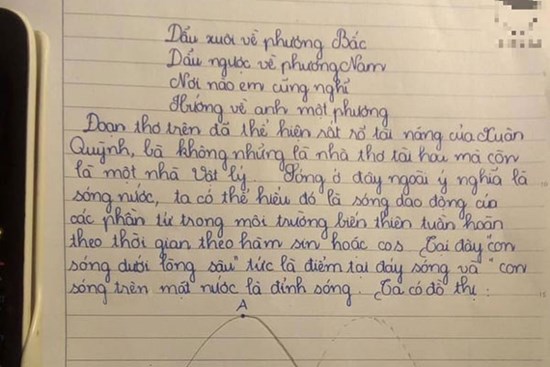 Dẩu xuôi về phương Bắc
Dẩu ngược về phương Nam
Nơi nào em cũng nghĩ
Hướng về anh một phương
Đoạn thơ trên đã thể hiện rất rõ tài năng của Xuân
Quỳnh, bà không những là nhà thơ tài hoa mà còn
là một nhà Vật lý. Sóng ở đây ngoài ý nghĩa là
sóng nước, ta có thể hiểu đó là sóng dao động của
các phần tử trong môi trường biến thiên tuần hoàn
theo thời gian theo hàm sin hoặc cos Tại đây "con
sóng dưới lòng sâu" tức là điểm tại đáy sóng và "con
sóng trên mặt nước là đỉnh sóng. Ta có đồ thị:
A